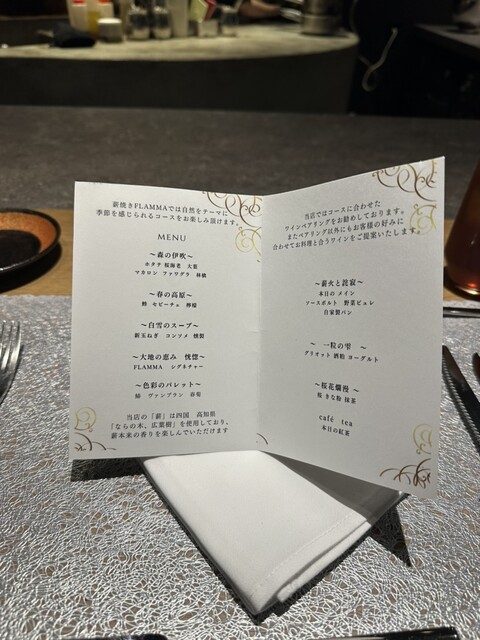 薪焼きFLAMMAでは自然をテーマに
季節を感じられるコースをお楽しみ頂けます。
MENU
～森の伊吹～
ホタテ 桜海老 大葉
マカロン フォワグラ 林檎
～春の高原～
鰆 セビーチェ 檸檬
～白雪のスープ～
新玉ねぎ コンソメ 燻製
～大地の恵み 恍惚～
FLAMMA シグネチャー
～色彩のパレット～
ヴァンブラン 春菊
当店の『薪』は四国 高知県
「ならの木、広葉樹」を使用しており、
薪本来の香りを楽しんでいただけます
当店ではコースに合わせた
ワインペアリングをお勧めしております。
またペアリング以外にもお客様の好みに
合わせてお料理と合うワインをご提案いたします。
～薪火と詫寂～
本日の メイン
ソースポルト 野菜ピュレ
自家製パン
～ 一粒の雫 ～
グリオット 酒粕 ヨーグルト
～桜花爛漫 ～
桜 きな粉 抹茶
café tea
本日の紅茶